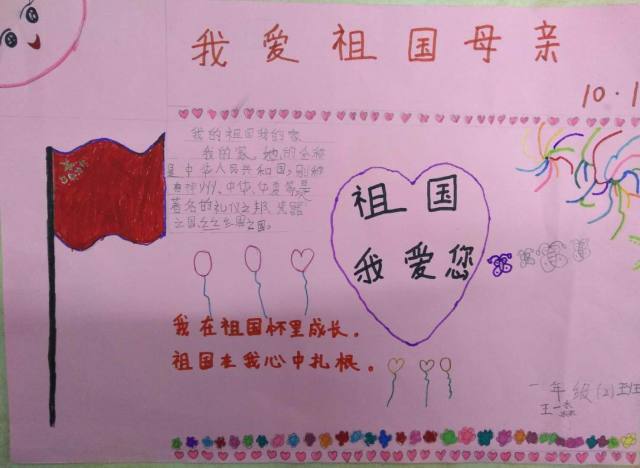 我爱祖国母亲
10.1
我的祖国我的家
我的家,她的全称
是中华人民共和国,别称
有神州、中华、华夏等是
著名的礼仪之邦、瓷器
之国、之国。
祖国
我爱您
我在祖国杯里成长。
祖国在我心中扎根。
一年级(2)班
王一淼